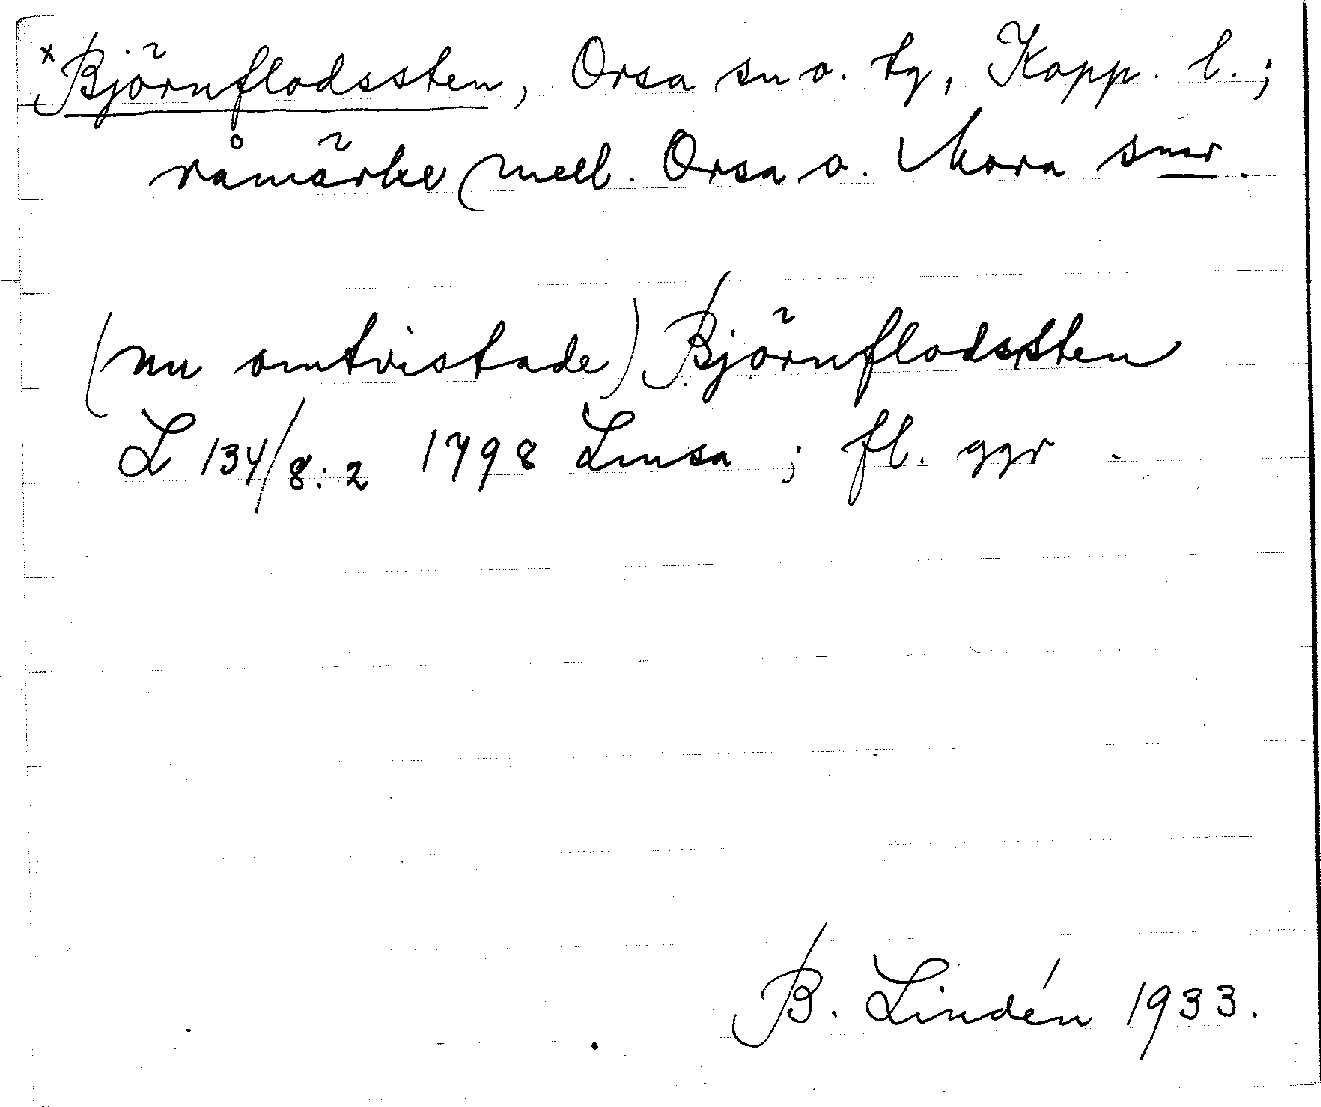 *Björnflodssten, Orsa sn o. tg, Kopp. l.;
råmärke mell. Orsa o. Mora snr.
(nu omtvistade) Björnflodssten
L 134/8:2 1798 Lmsa ; fl. ggr
B. Lindén 1933.